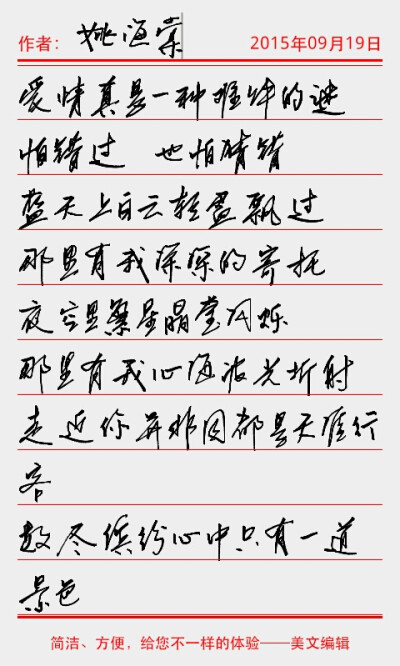 作者： 姚海棠 2015年09月19日
爱情真是一种难解的谜
怕错过 也怕猜错
蓝天上白云轻盈飘过
那里有我深深的寄托
夜空里繁星晶莹闪烁
那里有我心海波光折射
走近你并非因都是天涯行
客
数尽缤纷心中只有一道
景色
简洁、方便，给您不一样的体验——美文编辑